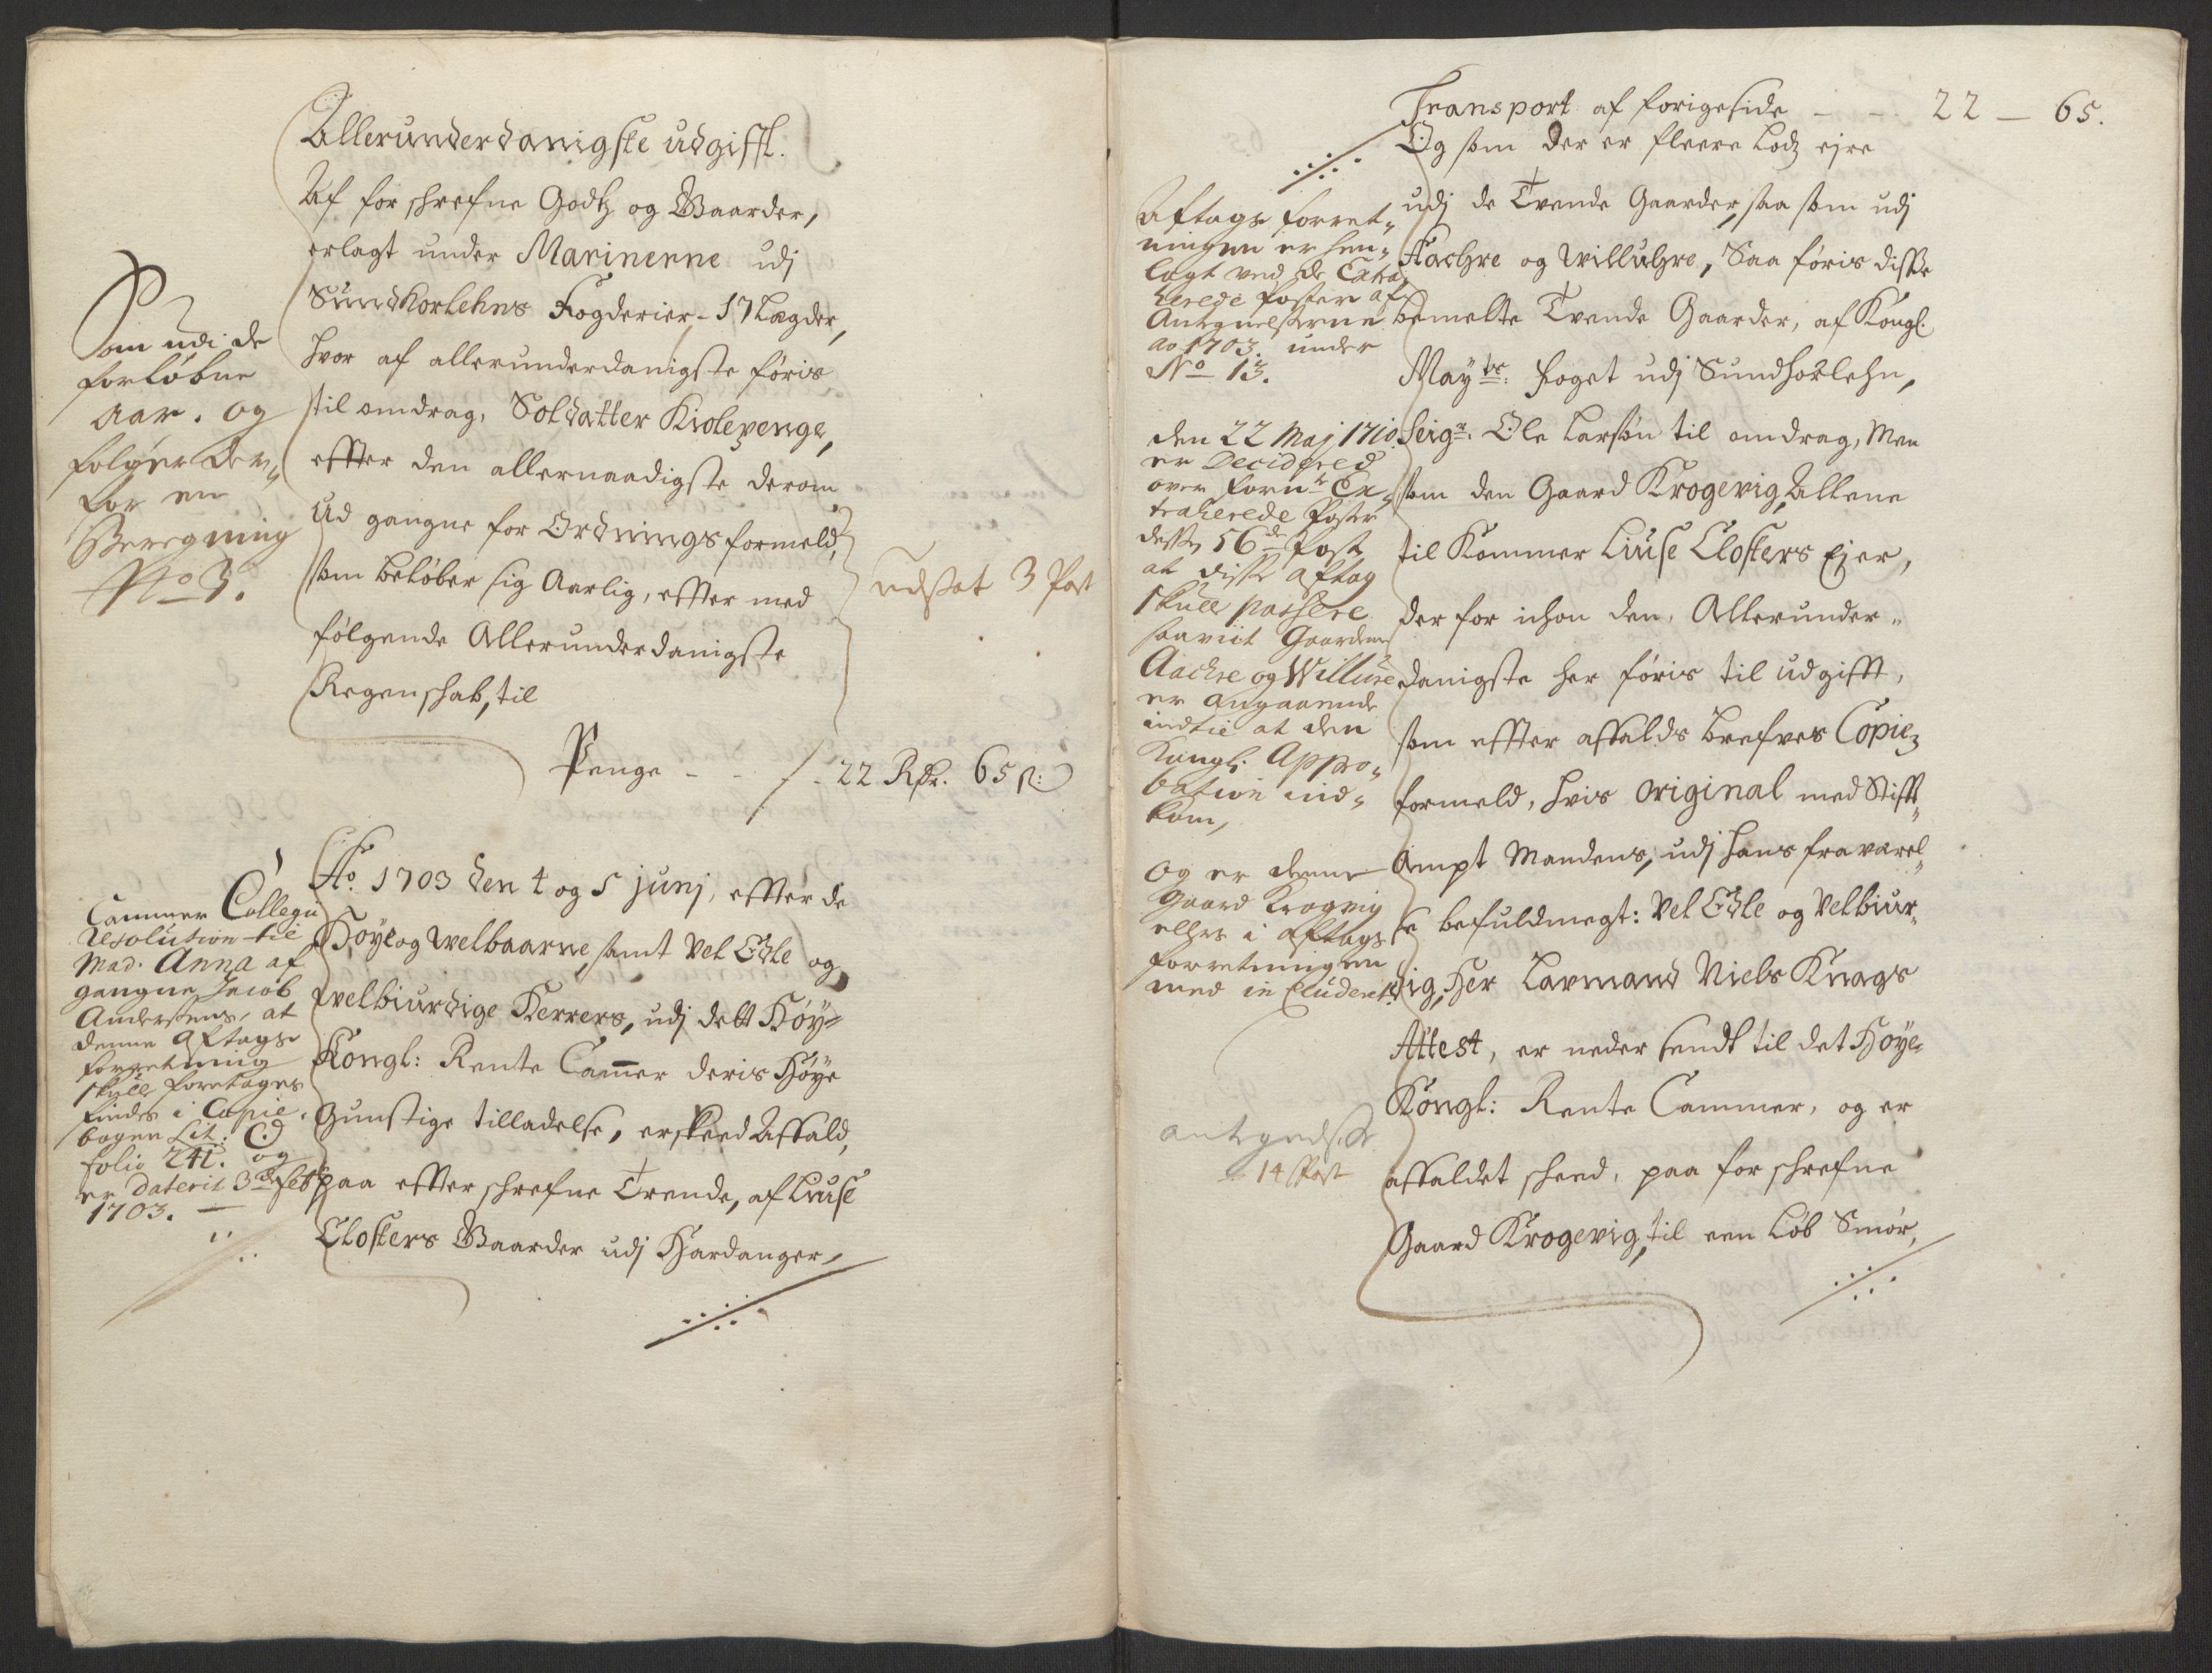 Allerunderdanigste udgifft.
Af for schrefne Godtz og Gaarder,
erlagt under Marinenne udj
Sundhorlehns Fogderier - 17 Lægder,
hvor af allerunderdanigste føris
til omdrag, Soldatter Kiolepenge,
effter den allernaadigste derom
ud gangne for Ordnings formeld,
som beløber sig Aarlig, effter med
følgende Allerunderdanigste
Regenschab, til
Penge - - 22 Rdr. 65 s:
Som udi de
forløbne
aar. og
følger der„
for en
Beregning
No 3.
udsat 3 Post
Ao. 1703 den 4 og 5 junj, effter de
Høye og welbaarne, samt Vel Edle og
welbiurdige Herrers, udj dett Høy„
Kongl: Rente Cammer deris Høye
Gunstige tilladelse, er skeed Affald,
paa effter schrefne Tvende, af Liuse
Closters Gaarder udj Hardanger,
Cammer Collegii
resolution til
Mad. Anna af
gangne Jacob
Andersens, at
denne aftags
forretning
skulle foretages
findes i Copie
bogen Lit: C.
folio 241. og
er daterit 3de feb
1703.
Transport af forigeside - - 22 - 65.
Og som der er fleere Lodz ejre
udj de Tvende Gaarder, saa som udj
Aachre og Willuhre, Saa føris disse
bemelte Tvende Gaarder, af Kongl.
Mayts: foget udj Sundhorlehn,
Seigr. Ole Larsøn til omdrag, Men
som den Gaard Krogevig, Allene
til Kommer Liuse Closters Ejer,
der for ichon den, Allerunder„
danigste her føris til udgifft,
som effter affalds brefves Copie,
formeld, hvis original med Stiffts„
Ampt Mandens, udj hans fraværel„
se befuldmegt: Vel Edle og Velbiur„
dig, Her Lavmand Niels Knags
Attest, er neder sendt til det Høye„
Kongl: Rente Cammer, og er
affaldet scheed, paa for schrefne
Gaard Krogevig, til een Løb Smør,
Aftags forret„
ningen er hen„
lagt ved de Extra
herede Poster af
Antegnelserne
ao 1703. under
No 13.
den 22 Maj 1710
er Decidered
over forne Ex„
traherede Poster
dess 56de Post
at disse aftag
skulle passere
saaviit Gaarden
Aachre og Willure
er angaaende
indtil at den
Kongl: Appro„
bation ind„
kom,
og er denne
Gaard Krogvig
ellers i aftags
forretningen
med includerit.
antegnelse
14 Post